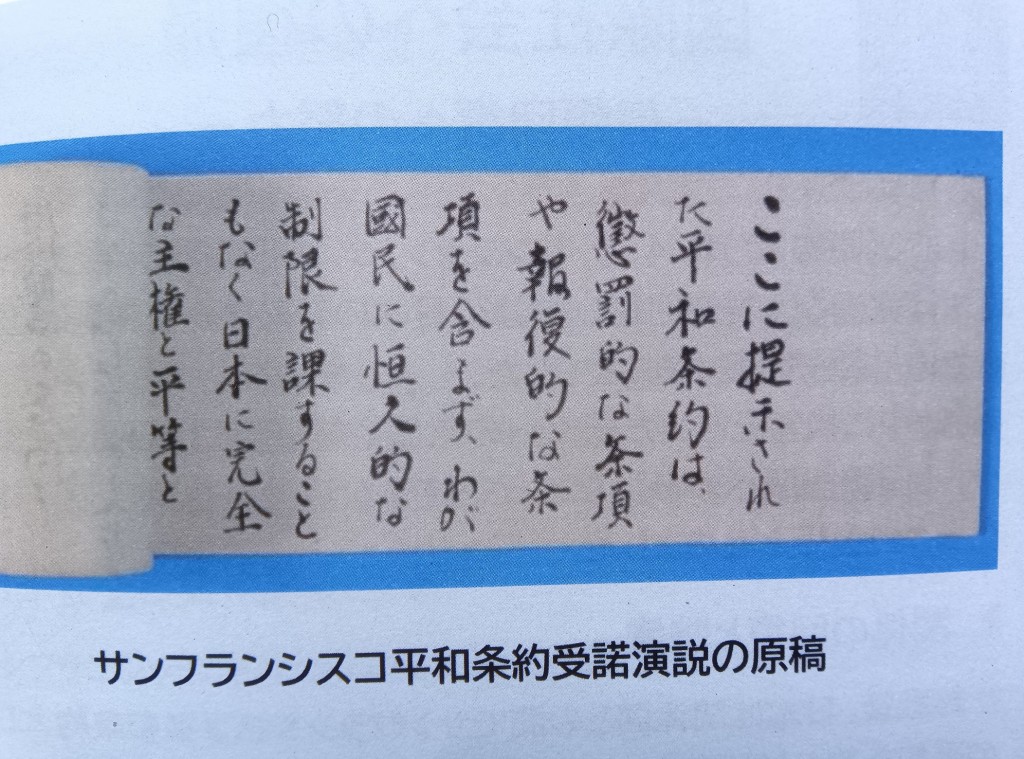 ここに提示され
た平和条約は、
懲罰的な条項
や報復的な条
項を含まず、わが
國民に恒久的な
制限を課すること
もなく日本に完全
な主権と平等と
サンフランシスコ平和条約受諾演説の原稿